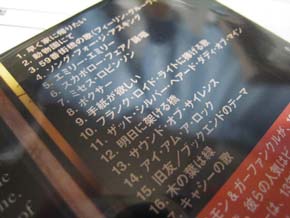 1. 早く家に帰りたい
2. 動物園にて
3. 59番街橋の歌(フィーリン・グルーヴィー)
4. ソング・フォー・アスキング
5. エミリー・エミリー
6. スカボロー・フェア/詠唱
7. ミセス・ロビンソン
8. ボクサー
9. 手紙が欲しい
10. フランク・ロイド・ライトに捧げる歌
11. ザット・シルバー・ヘアード・ダディ・オブ・マイン
12. 明日に架ける橋
13. サウンド・オブ・サイレンス
14. アイ・アム・ア・ロック
15. 旧友/ブックエンドのテーマ
16. 木の葉は緑
キャシーの歌
モン&ガーファンクルが、
彼らの人気は